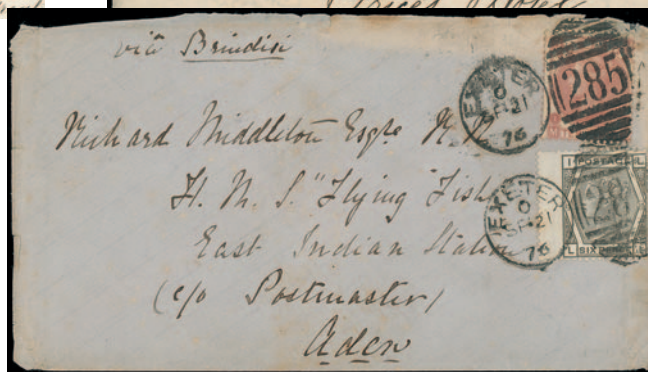 via Brindisi
Richard Middleton Esqre R.N.
H. M. S. "Flying" Fish
East Indian Station
(c/o Postmaster)
Aden
EXETER
O
SP 21
76
285
EXETER
O
SP 21
76
28
I POSTAGE L
L SIX PENCE